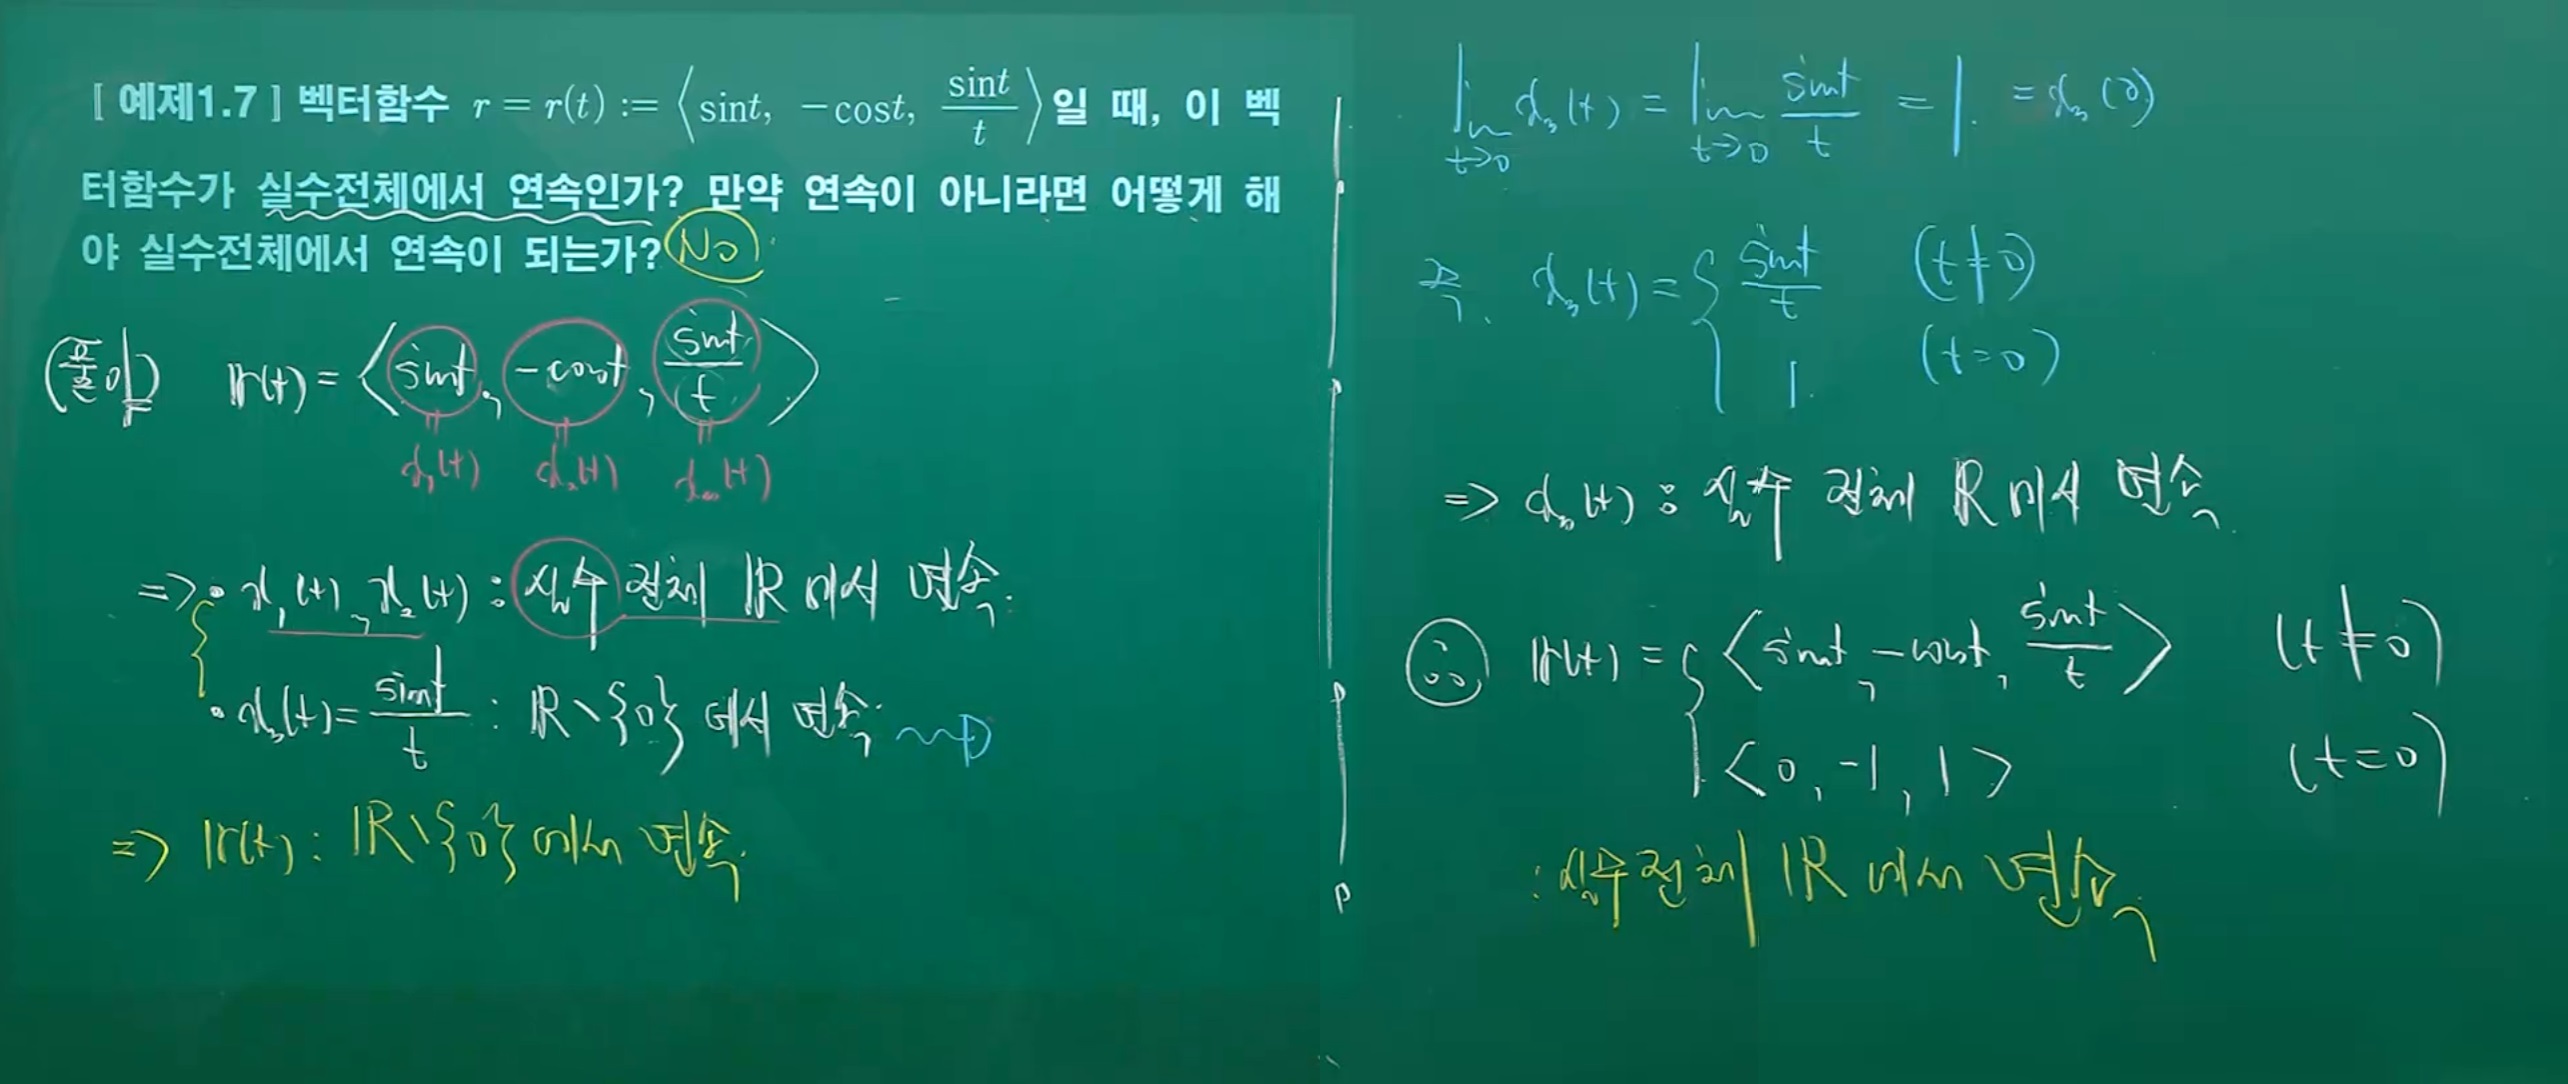 [예제1.7] 벡터함수 r = r(t) := ⟨sint, -cost, sint/t⟩일 때, 이 벡
터함수가 실수전체에서 연속인가? 만약 연속이 아니라면 어떻게 해
야 실수전체에서 연속이 되는가? No
(풀이) r(t) = ⟨sint, -cost, sint/t⟩
x₁(t) x₂(t) x₃(t)
⇒ • x₁(t), x₂(t) : 실수 전체 ℝ에서 연속.
• x₃(t) = sint/t : ℝ\{0}에서 연속.
⇒ r(t) : ℝ\{0}에서 연속.
lim t→0 x₃(t) = lim t→0 sint/t = 1. = x₃(0)
즉. x₃(t) = { sint/t (t≠0)
1. (t=0)
⇒ x₃(t) : 실수 전체 ℝ에서 연속.
∴ r(t) = { ⟨sint, -cost, sint/t⟩ (t≠0)
⟨0, -1, 1⟩ (t=0)
: 실수전체 ℝ에서 연속.